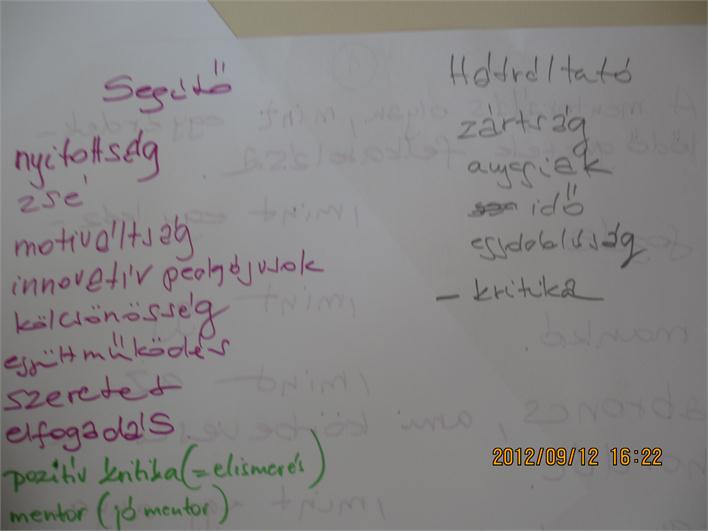 Segítő
nyitottság
zsé
motiváltság
innovatív pedagógusok
kölcsönösség
együttműködés
szeretet
elfogadás
pozitív kritika (=elismerés)
mentor (jó mentor)
Hátráltató
zártság
anyagiak
idő
egyoldalúság
– kritika
2012/09/12 16:22